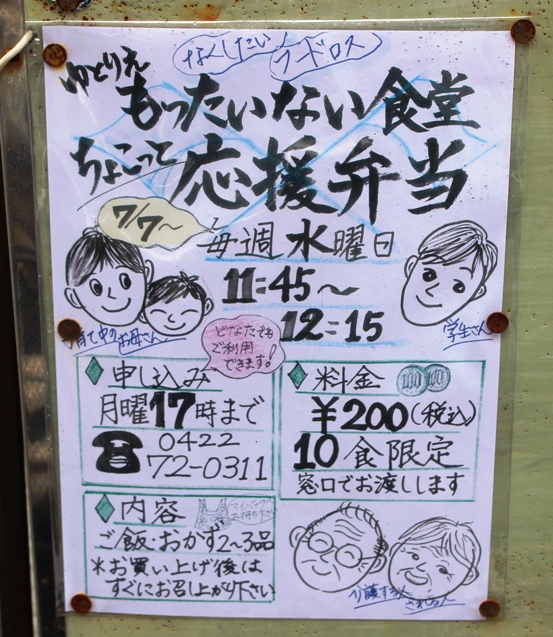 なくしたい フードロス
ゆとりえ
もったいない食堂
ちょこっと
応援弁当
7/7～
毎週水曜日
11:45～
12:15
子育て中の お母さん
学生さん
どなたでも
ご利用
できます!
◆申し込み
月曜17時まで
☎ 0422
72-0311
◆料金 100 100
￥200(税込)
10食限定
窓口でお渡しします
◆内容
マイバッグ
お持ち下さい
ご飯・おかず2～3品
*お買い上げ後は
すぐにお召し上がり下さい
介護する人
される人